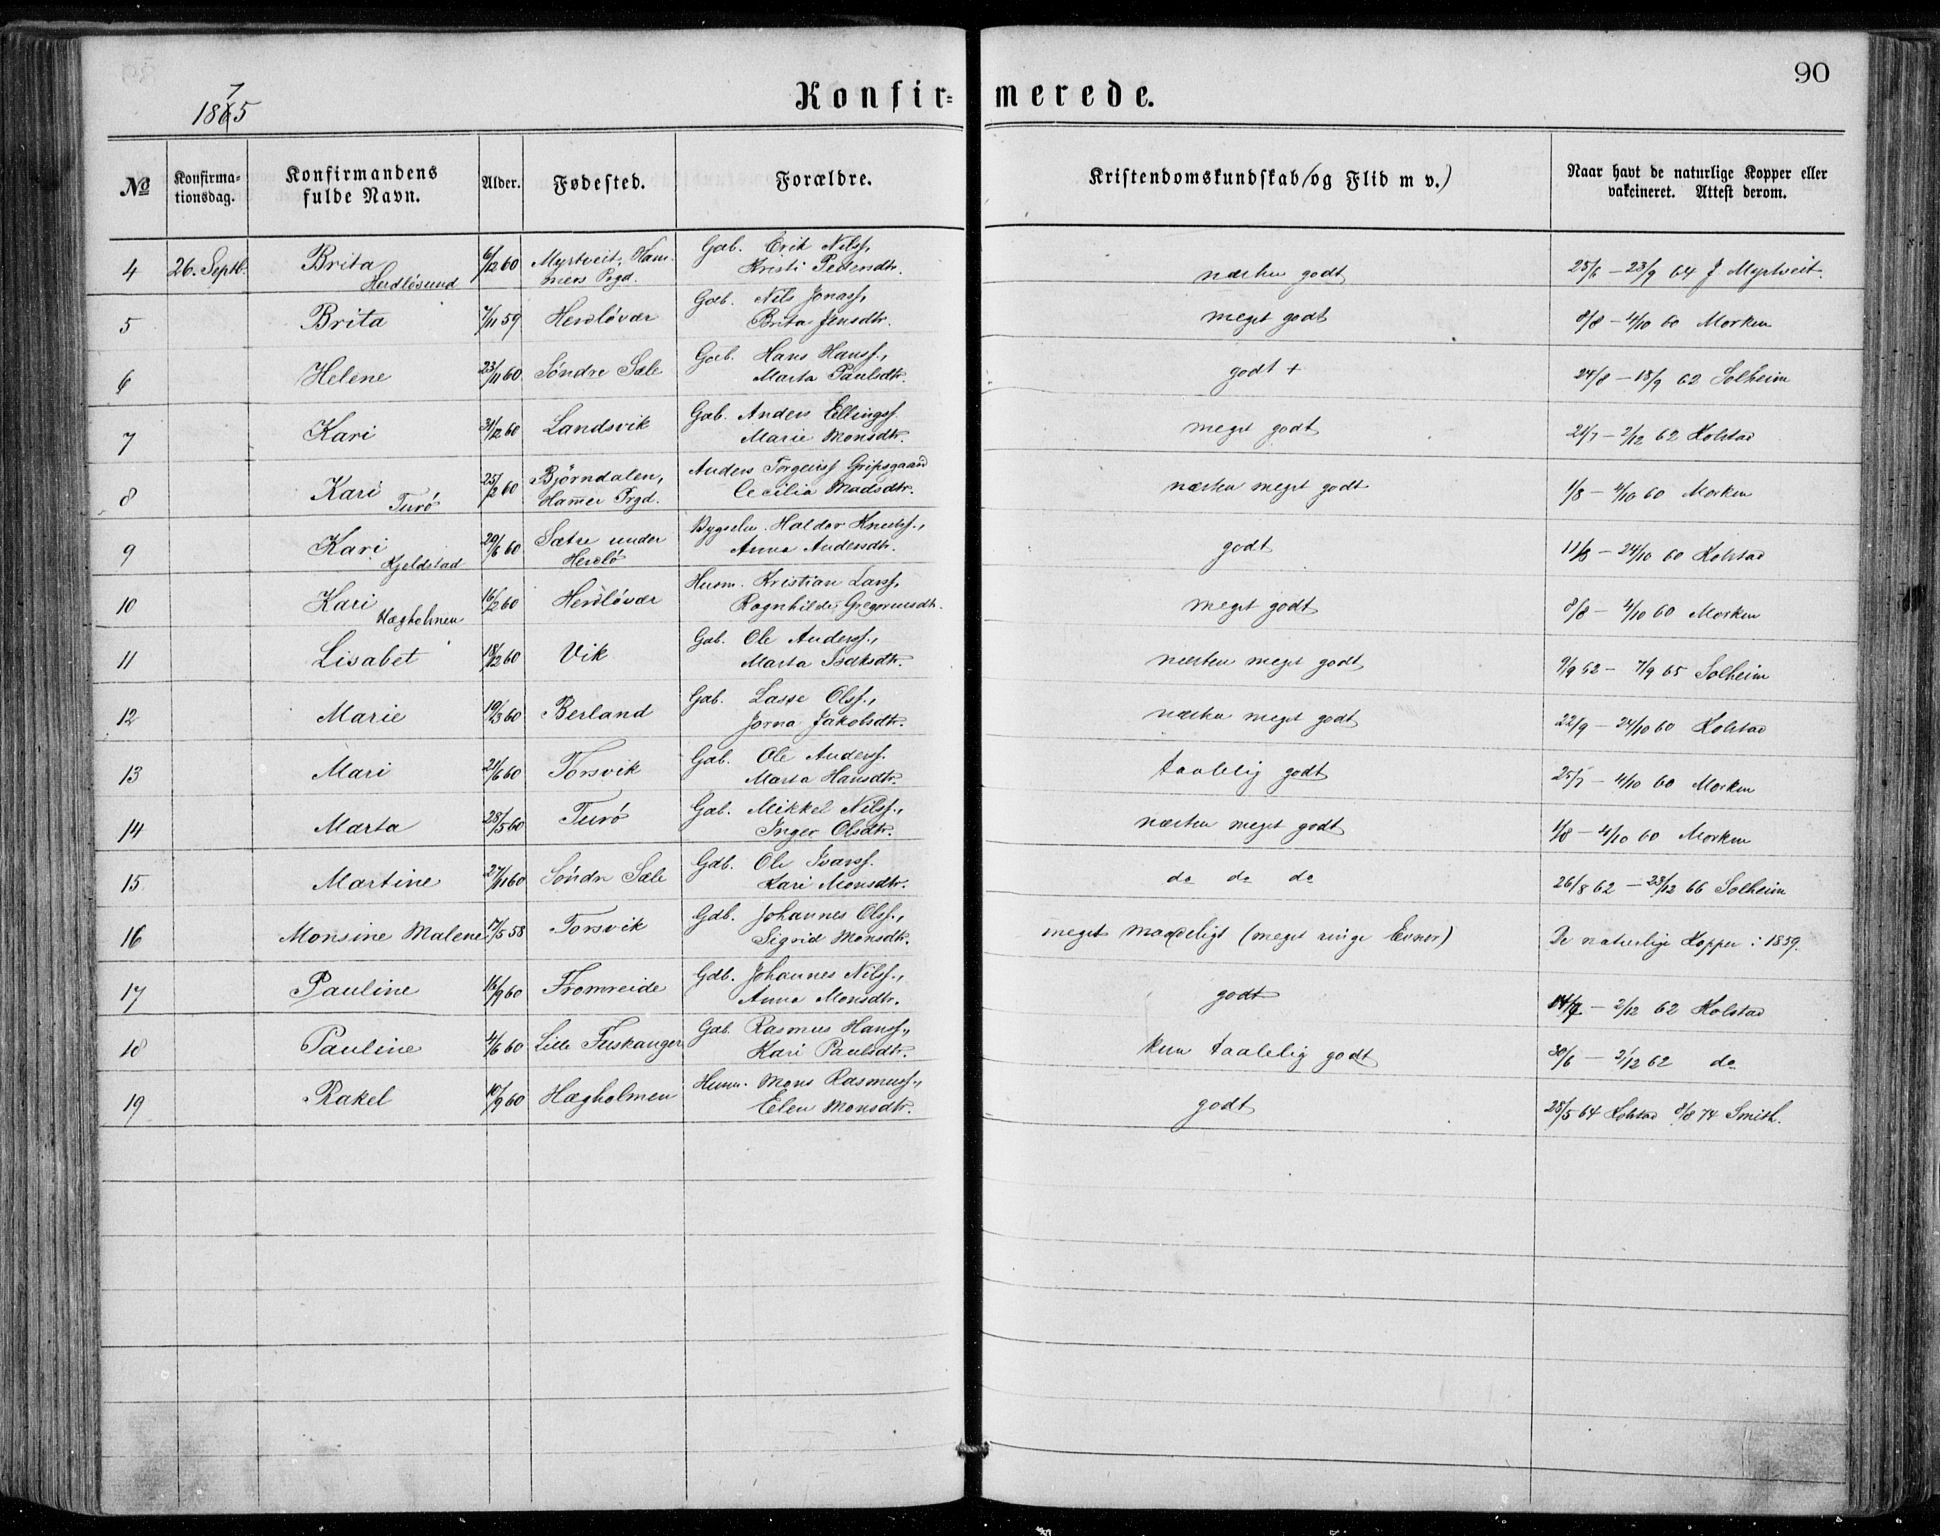 90
1875
Konfirmerede.
№ Konfirmationsdag. Konfirmandens fulde Navn. Alder. Fødested. Forældre. Kristendomskundskab (og Flid m v.) Naar havt de naturlige Kopper eller vakcineret. Attest derom.
4 26. Septb. Brita 6/12 60 Myrtveit, Ham- Gab. Erik Nilss,
Herdløsund mers Prgd. Kristi Pedersdtr. næsten godt 25/6 – 23/9 64 J Myrtveit
5 Brita 7/11 59 Herdløvær Gab. Nils Jonass,
Brita Jensdtr. meget godt 8/8 – 4/10 60 Morken
6 Helene 23/11 60 Søndre Sæle Gab. Hans Hanss.,
Marta Paulsdtr. godt + 24/8 – 18/9 62 Solheim
7 Kari 31/12 60 Landsvik Gab. Anders Ellingss.
Marie Monsdtr. meget godt 21/7 – 2/12 62 Kolstad
8 Kari 25/2 60 Bjørndalen, Anders Torgeirss Gripsgaard
Turø Hamer Prgd. Cecilia Madsdtr. næsten meget godt 1/8 – 4/10 60 Morken
9 Kari 29/6 60 Sætre under Bygselm. Haldor Knuts.,
Kjeldstad Herdlø Anna Andersdtr. godt 11/8 – 24/10 60 Kolstad
10 Kari 16/2 60 Herdløvær Husm. Kristian Larss,
Hægholmen Ragnhilde Gregoriusdtr. meget godt 8/8 – 4/10 60 Morken
11 Lisabet 18/12 60 Vik Gab. Ole Anderss.,
Marta Isaksdtr. næsten meget godt 9/9 62 – 7/9 65 Solheim
12 Marie 19/3 60 Berland Gab. Lasse Olss.,
Jorna Jakobsdtr. næsten meget godt 22/9 – 24/10 60 Kolstad
13 Mari 21/6 60 Torsvik Gab. Ole Anderss.
Marta Hansdtr. taalelig godt 25/7 – 4/10 60 Morken
14 Marta 28/5 60 Turø Gab. Mikkel Nilss.,
Inger Olsdtr. næsten meget godt 1/8 – 4/10 60 Morken
15 Martine 27/11 60 Søndre Sæle Gdb. Ole Ivarss.
Kari Monsdtr. do do do 26/8 62 – 23/12 66 Solheim
16 Monsine Malene 17/5 58 Torsvik Gdb. Johannes Olss.,
Sigrid Monsdtr. meget maadeligt (meget ringe Evner) De naturlige Kopper i 1859.
17 Pauline 16/9 60 Fromreide Gdb. Johannes Nilss.,
Anna Monsdtr. godt 14/7 – 2/12 62 Kolstad
18 Pauline 4/6 60 Lille Fuskanger Gab. Rasmus Hanss.,
Kari Paulsdtr. kun taalelig godt 30/6 – 2/12 62 do
19 Rakel 10/9 60 Hægholmen Husm. Mons Rasmuss.,
Elen Monsdtr. godt 25/5 64 Kolstad 8/8 74 Smith.